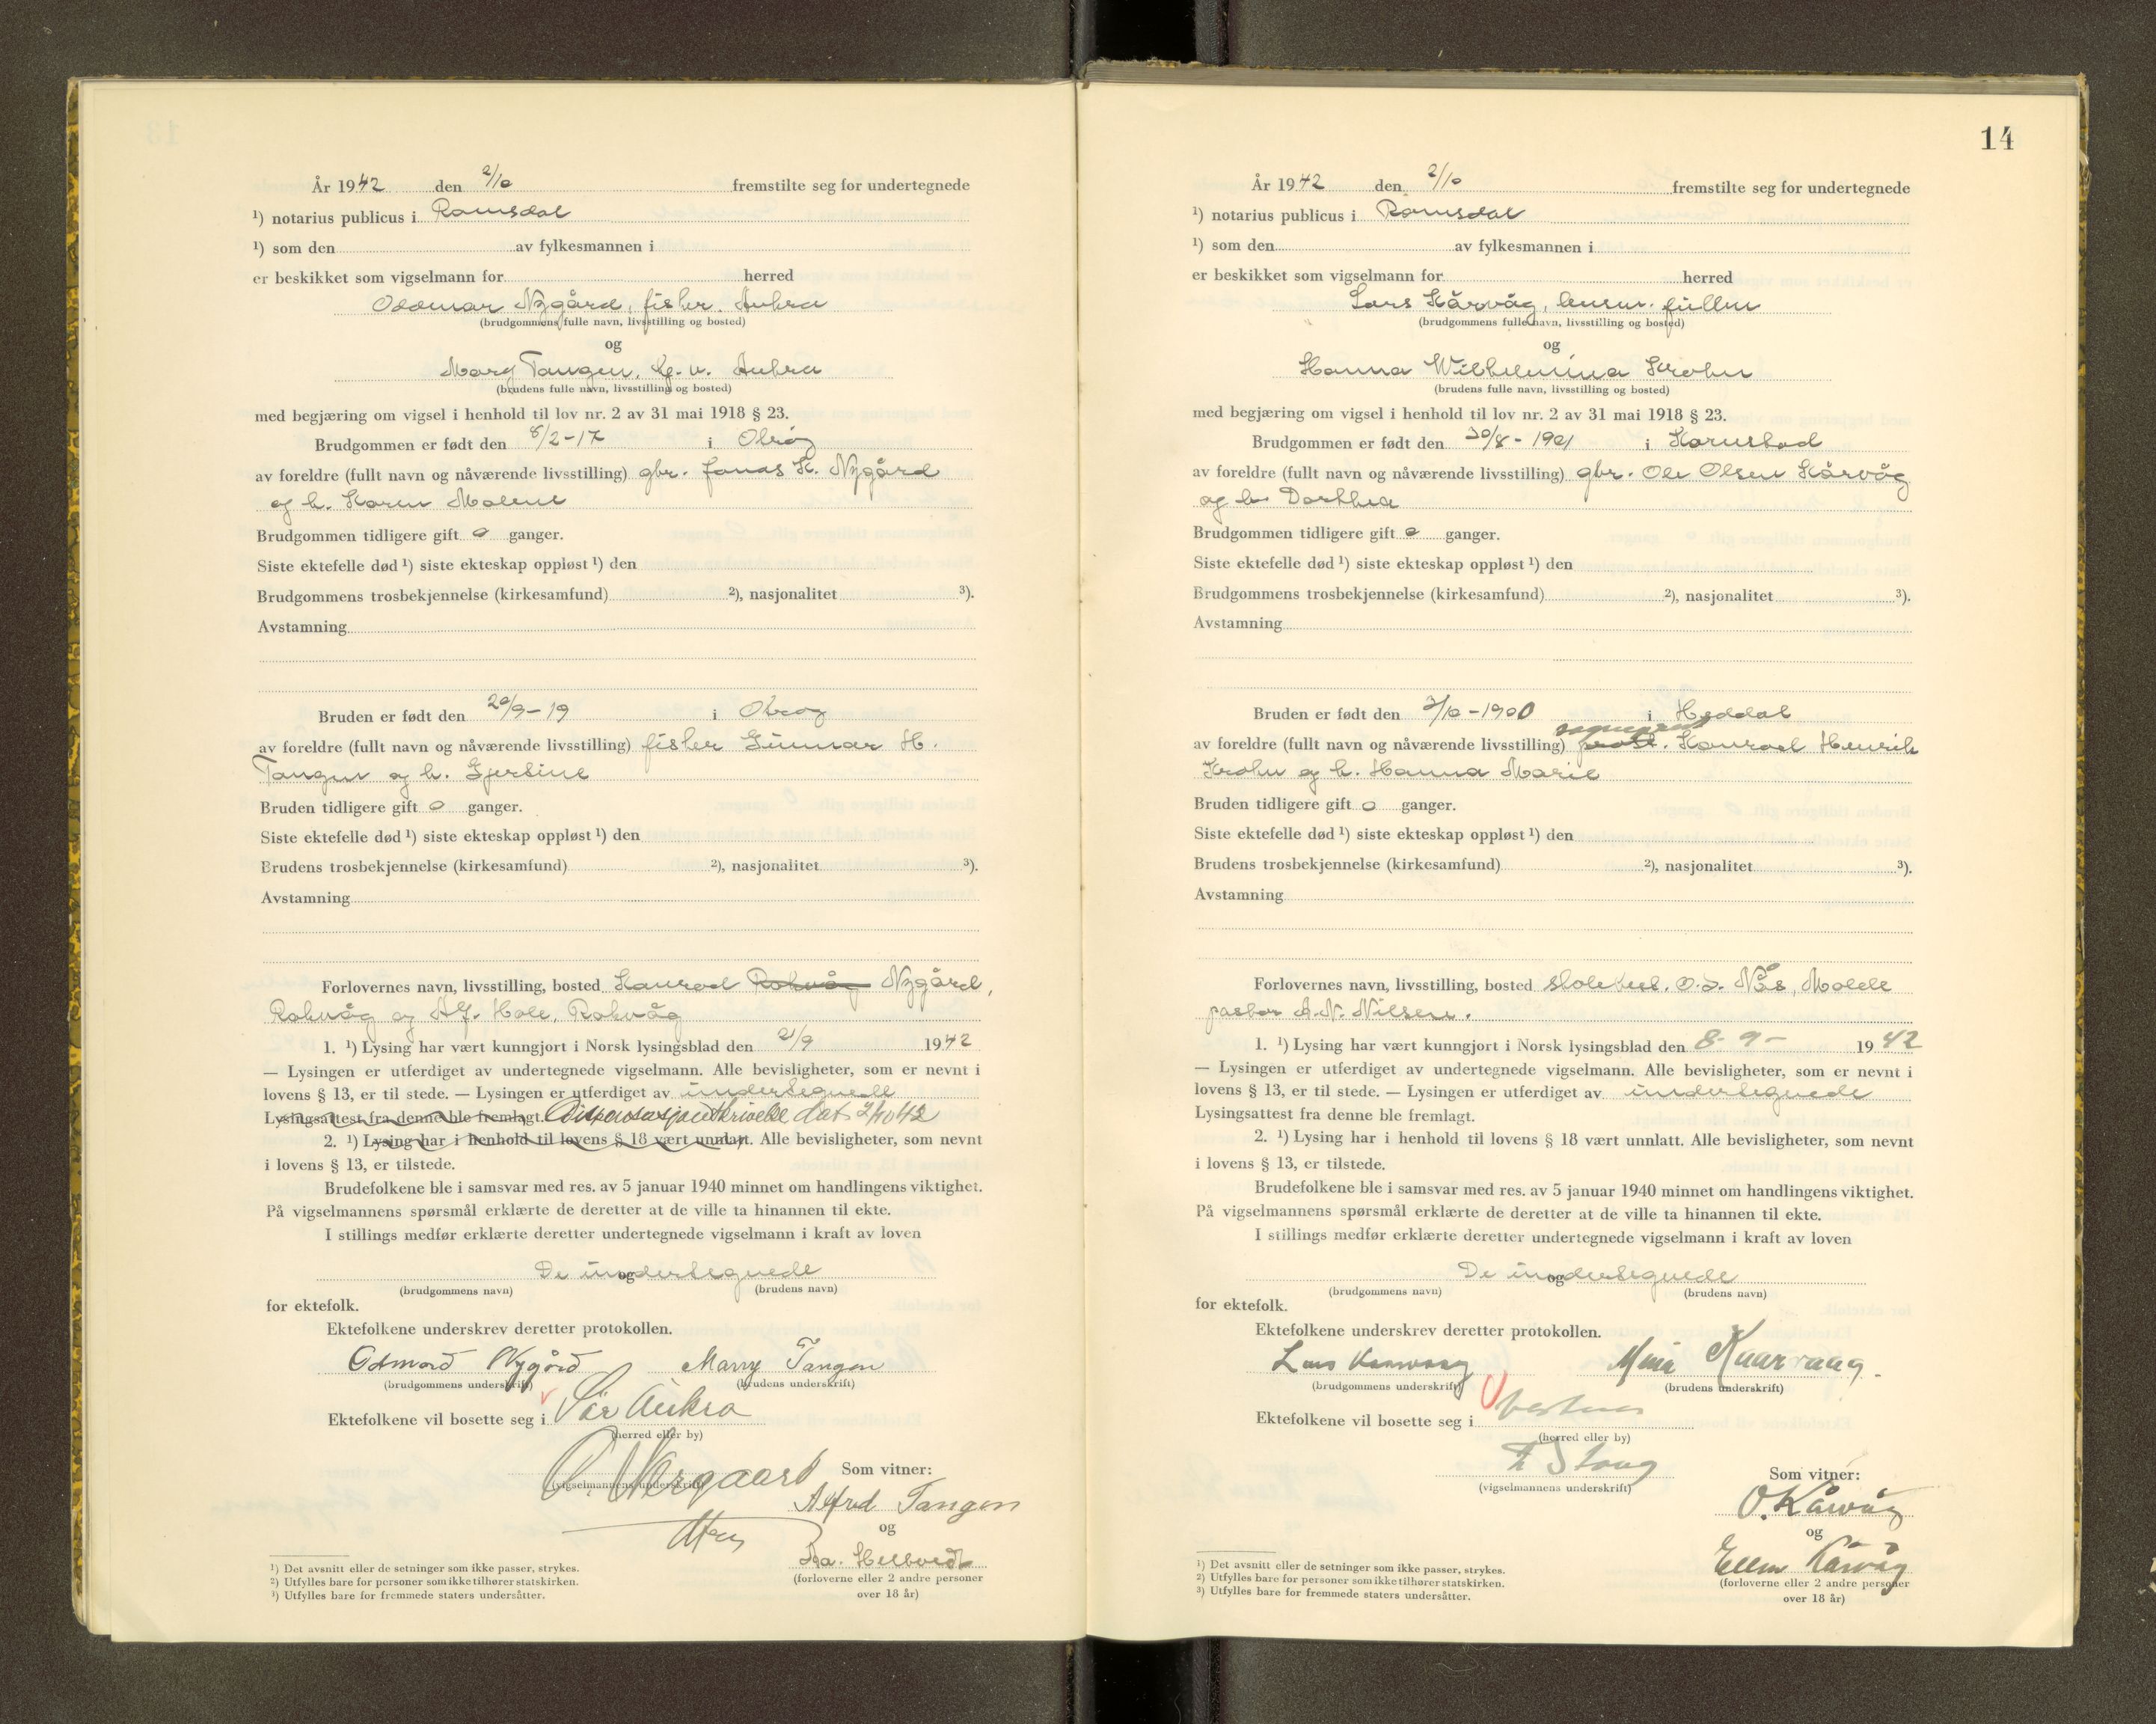 År 1942 den 2/10 fremstilte seg for undertegnede
¹) notarius publicus i Romsdal
¹) som den av fylkesmannen i
er beskikket som vigselmann for herred
Odmar Nygård, fisker, Aukra
(brudgommens fulle navn, livsstilling og bosted)
og
Mary Tangen, Aukra
(brudens fulle navn, livsstilling og bosted)
med begjæring om vigsel i henhold til lov nr. 2 av 31 mai 1918 § 23.
Brudgommen er født den 8/2-17 i Otrøy
av foreldre (fullt navn og nåværende livsstilling) gbr. Jonas K. Nygård
og h. Karen Malene
Brudgommen tidligere gift 0 ganger.
Siste ektefelle død ¹) siste ekteskap oppløst ¹) den
Brudgommens trosbekjennelse (kirkesamfund) ²), nasjonalitet ³).
Avstamning
Bruden er født den 20/9-19 i Otrøy
av foreldre (fullt navn og nåværende livsstilling) fisker Gunnar H.
Tangen og h. Gjertine
Bruden tidligere gift 0 ganger.
Siste ektefelle død ¹) siste ekteskap oppløst ¹) den
Brudens trosbekjennelse (kirkesamfund) ²), nasjonalitet ³).
Avstamning
Forlovernes navn, livsstilling, bosted Konrad Rakvåg Nygård,
Rakvåg og Alf. Hole, Rakvåg
1. ¹) Lysing har vært kunngjort i Norsk lysingsblad den 21/9 1942
— Lysingen er utferdiget av undertegnede vigselmann. Alle bevisligheter, som er nevnt i
lovens § 13, er til stede. — Lysingen er utferdiget av undertegnede
Lysingsattest fra denne ble fremlagt. dat 2/10 42
2. ¹) Lysing har i henhold til lovens § 18 vært unnlatt. Alle bevisligheter, som nevnt
i lovens § 13, er tilstede.
Brudefolkene ble i samsvar med res. av 5 januar 1940 minnet om handlingens viktighet.
På vigselmannens spørsmål erklærte de deretter at de ville ta hinannen til ekte.
I stillings medfør erklærte deretter undertegnede vigselmann i kraft av loven
De undertegnede
og
(brudgommens navn) (brudens navn)
for ektefolk.
Ektefolkene underskrev deretter protokollen.
Odmar Nygård Marry Tangen
(brudgommens underskrift) (brudens underskrift)
Ektefolkene vil bosette seg i Sør Aukra
(herred eller by)
Som vitner:
(vigselmannens underskrift)
Alfred Tangen
og
(forloverne eller 2 andre personer
over 18 år)
¹) Det avsnitt eller de setninger som ikke passer, strykes.
²) Utfylles bare for personer som ikke tilhører statskirken.
³) Utfylles bare for fremmede staters undersåtter.
14
År 1942 den 2/10 fremstilte seg for undertegnede
¹) notarius publicus i Romsdal
¹) som den av fylkesmannen i
er beskikket som vigselmann for herred
Lars Kårvåg, lensm. fullm
(brudgommens fulle navn, livsstilling og bosted)
og
Hanna Wilhelmina Krohn
(brudens fulle navn, livsstilling og bosted)
med begjæring om vigsel i henhold til lov nr. 2 av 31 mai 1918 § 23.
Brudgommen er født den 30/8-1901 i Kornstad
av foreldre (fullt navn og nåværende livsstilling) gbr. Ole Olsen Kårvåg
og h. Dorthea
Brudgommen tidligere gift 0 ganger.
Siste ektefelle død ¹) siste ekteskap oppløst ¹) den
Brudgommens trosbekjennelse (kirkesamfund) ²), nasjonalitet ³).
Avstamning
Bruden er født den 3/10-1900 i Heddal
av foreldre (fullt navn og nåværende livsstilling) Konrad Henrik
Krohn og h. Hanna Marie
Bruden tidligere gift 0 ganger.
Siste ektefelle død ¹) siste ekteskap oppløst ¹) den
Brudens trosbekjennelse (kirkesamfund) ²), nasjonalitet ³).
Avstamning
Forlovernes navn, livsstilling, bosted skolebest. O.J. Nås, Molde
pastor A.N. Nilsen.
1. ¹) Lysing har vært kunngjort i Norsk lysingsblad den 8-9- 1942
— Lysingen er utferdiget av undertegnede vigselmann. Alle bevisligheter, som er nevnt i
lovens § 13, er til stede. — Lysingen er utferdiget av undertegnede
Lysingsattest fra denne ble fremlagt.
2. ¹) Lysing har i henhold til lovens § 18 vært unnlatt. Alle bevisligheter, som nevnt
i lovens § 13, er tilstede.
Brudefolkene ble i samsvar med res. av 5 januar 1940 minnet om handlingens viktighet.
På vigselmannens spørsmål erklærte de deretter at de ville ta hinannen til ekte.
I stillings medfør erklærte deretter undertegnede vigselmann i kraft av loven
De undertegnede
og
(brudgommens navn) (brudens navn)
for ektefolk.
Ektefolkene underskrev deretter protokollen.
Lars Kaarvaag Mina Kaarvaag.
(brudgommens underskrift) (brudens underskrift)
Ektefolkene vil bosette seg i Vestnes
(herred eller by)
Som vitner:
(vigselmannens underskrift)
O. Kårvåg
og
Ellen Kårvåg
(forloverne eller 2 andre personer
over 18 år)
¹) Det avsnitt eller de setninger som ikke passer, strykes.
²) Utfylles bare for personer som ikke tilhører statskirken.
³) Utfylles bare for fremmede staters undersåtter.